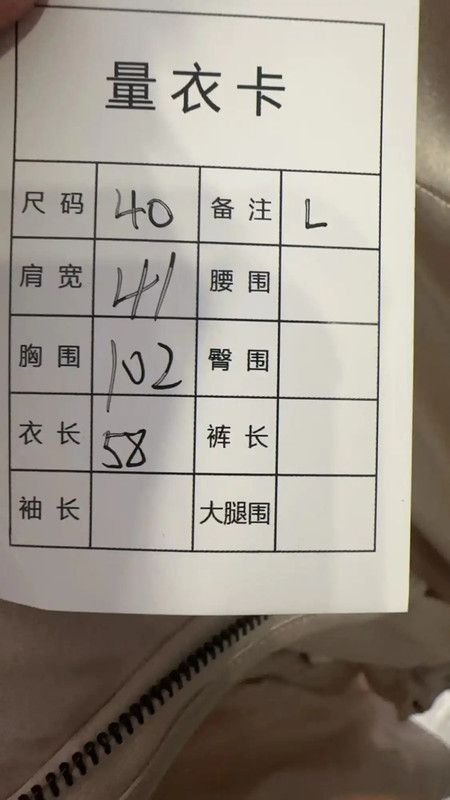 量衣卡
尺码 40 备注 L
肩宽 41 腰围
胸围 102 臀围
衣长 58 裤长
袖长 大腿围